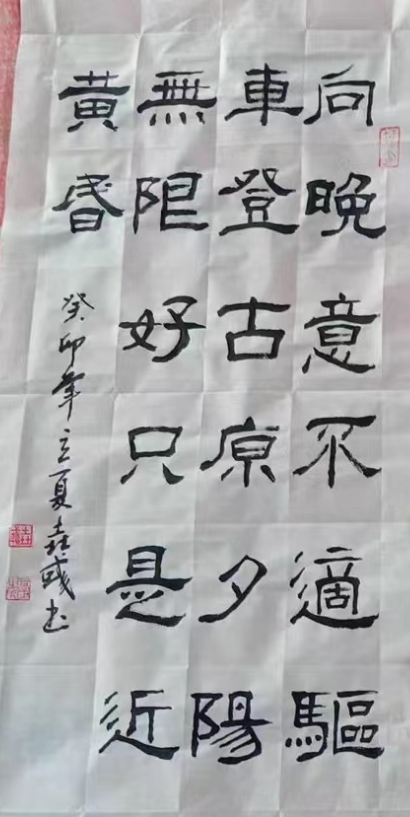 向晚意不適驅
車登古原夕陽
無限好只是近
黃昏
癸卯年立夏垚彧书